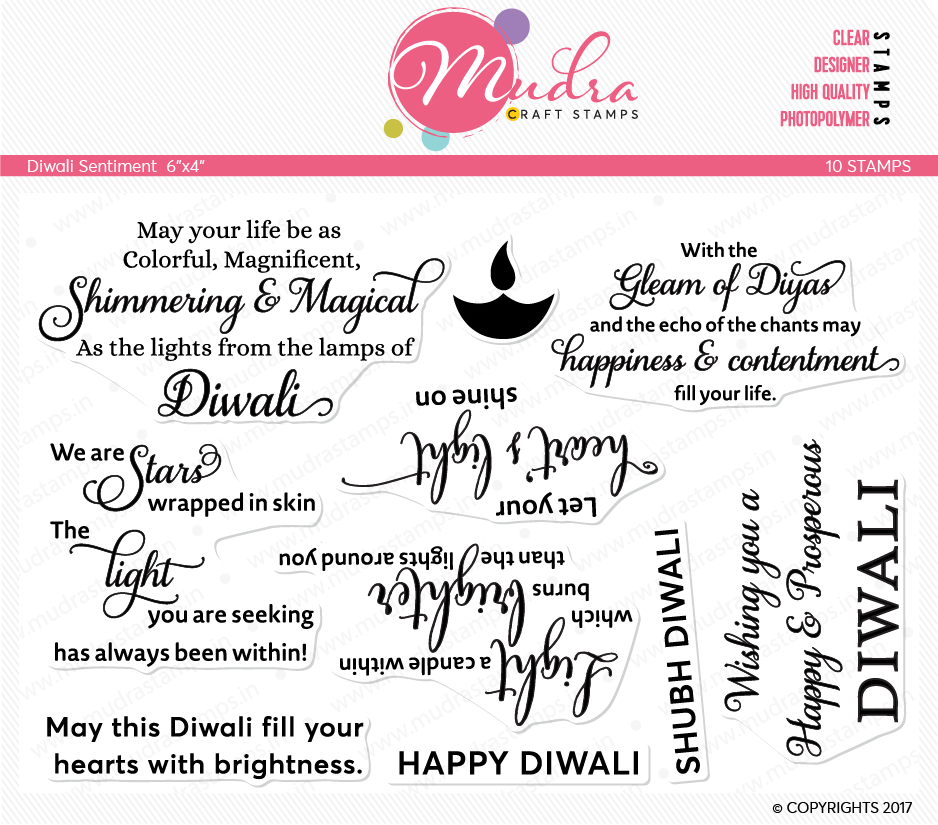 Mudra
CRAFT STAMPS
CLEAR
DESIGNER
HIGH QUALITY
PHOTOPOLYMER
STAMPS
Diwali Sentiment 6"x4"
10 STAMPS
May your life be as
Colorful, Magnificent,
Shimmering & Magical
As the lights from the lamps of
Diwali
With the
Gleam of Diyas
and the echo of the chants may
happiness & contentment
fill your life.
Let your
heart's light
shine on
We are
Stars
wrapped in skin
The
light
you are seeking
has always been within!
Light
a candle within
which
burns
brighter
than the lights around you
SHUBH DIWALI
Wishing you a
Happy & Prosperous
DIWALI
May this Diwali fill your
hearts with brightness.
HAPPY DIWALI
© COPYRIGHTS 2017
www.mudrastamps.in